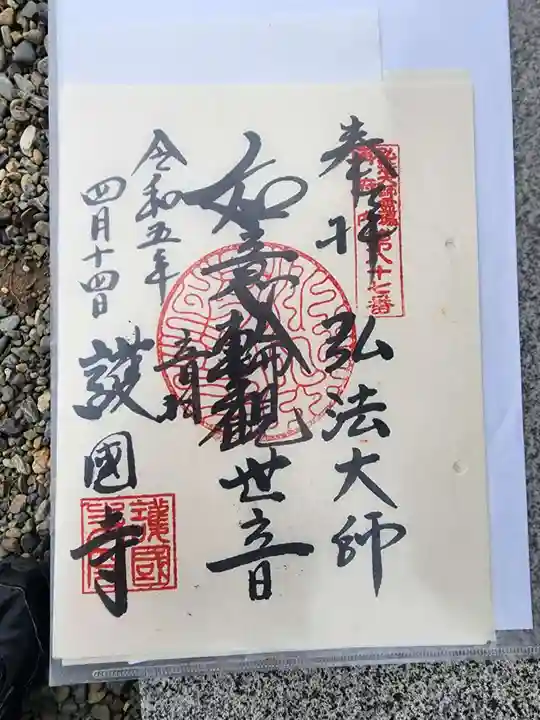 奉拝 弘法大師
第八十七番
如意輪觀世音
令和五年
四月十四日
音羽
護國寺
護國